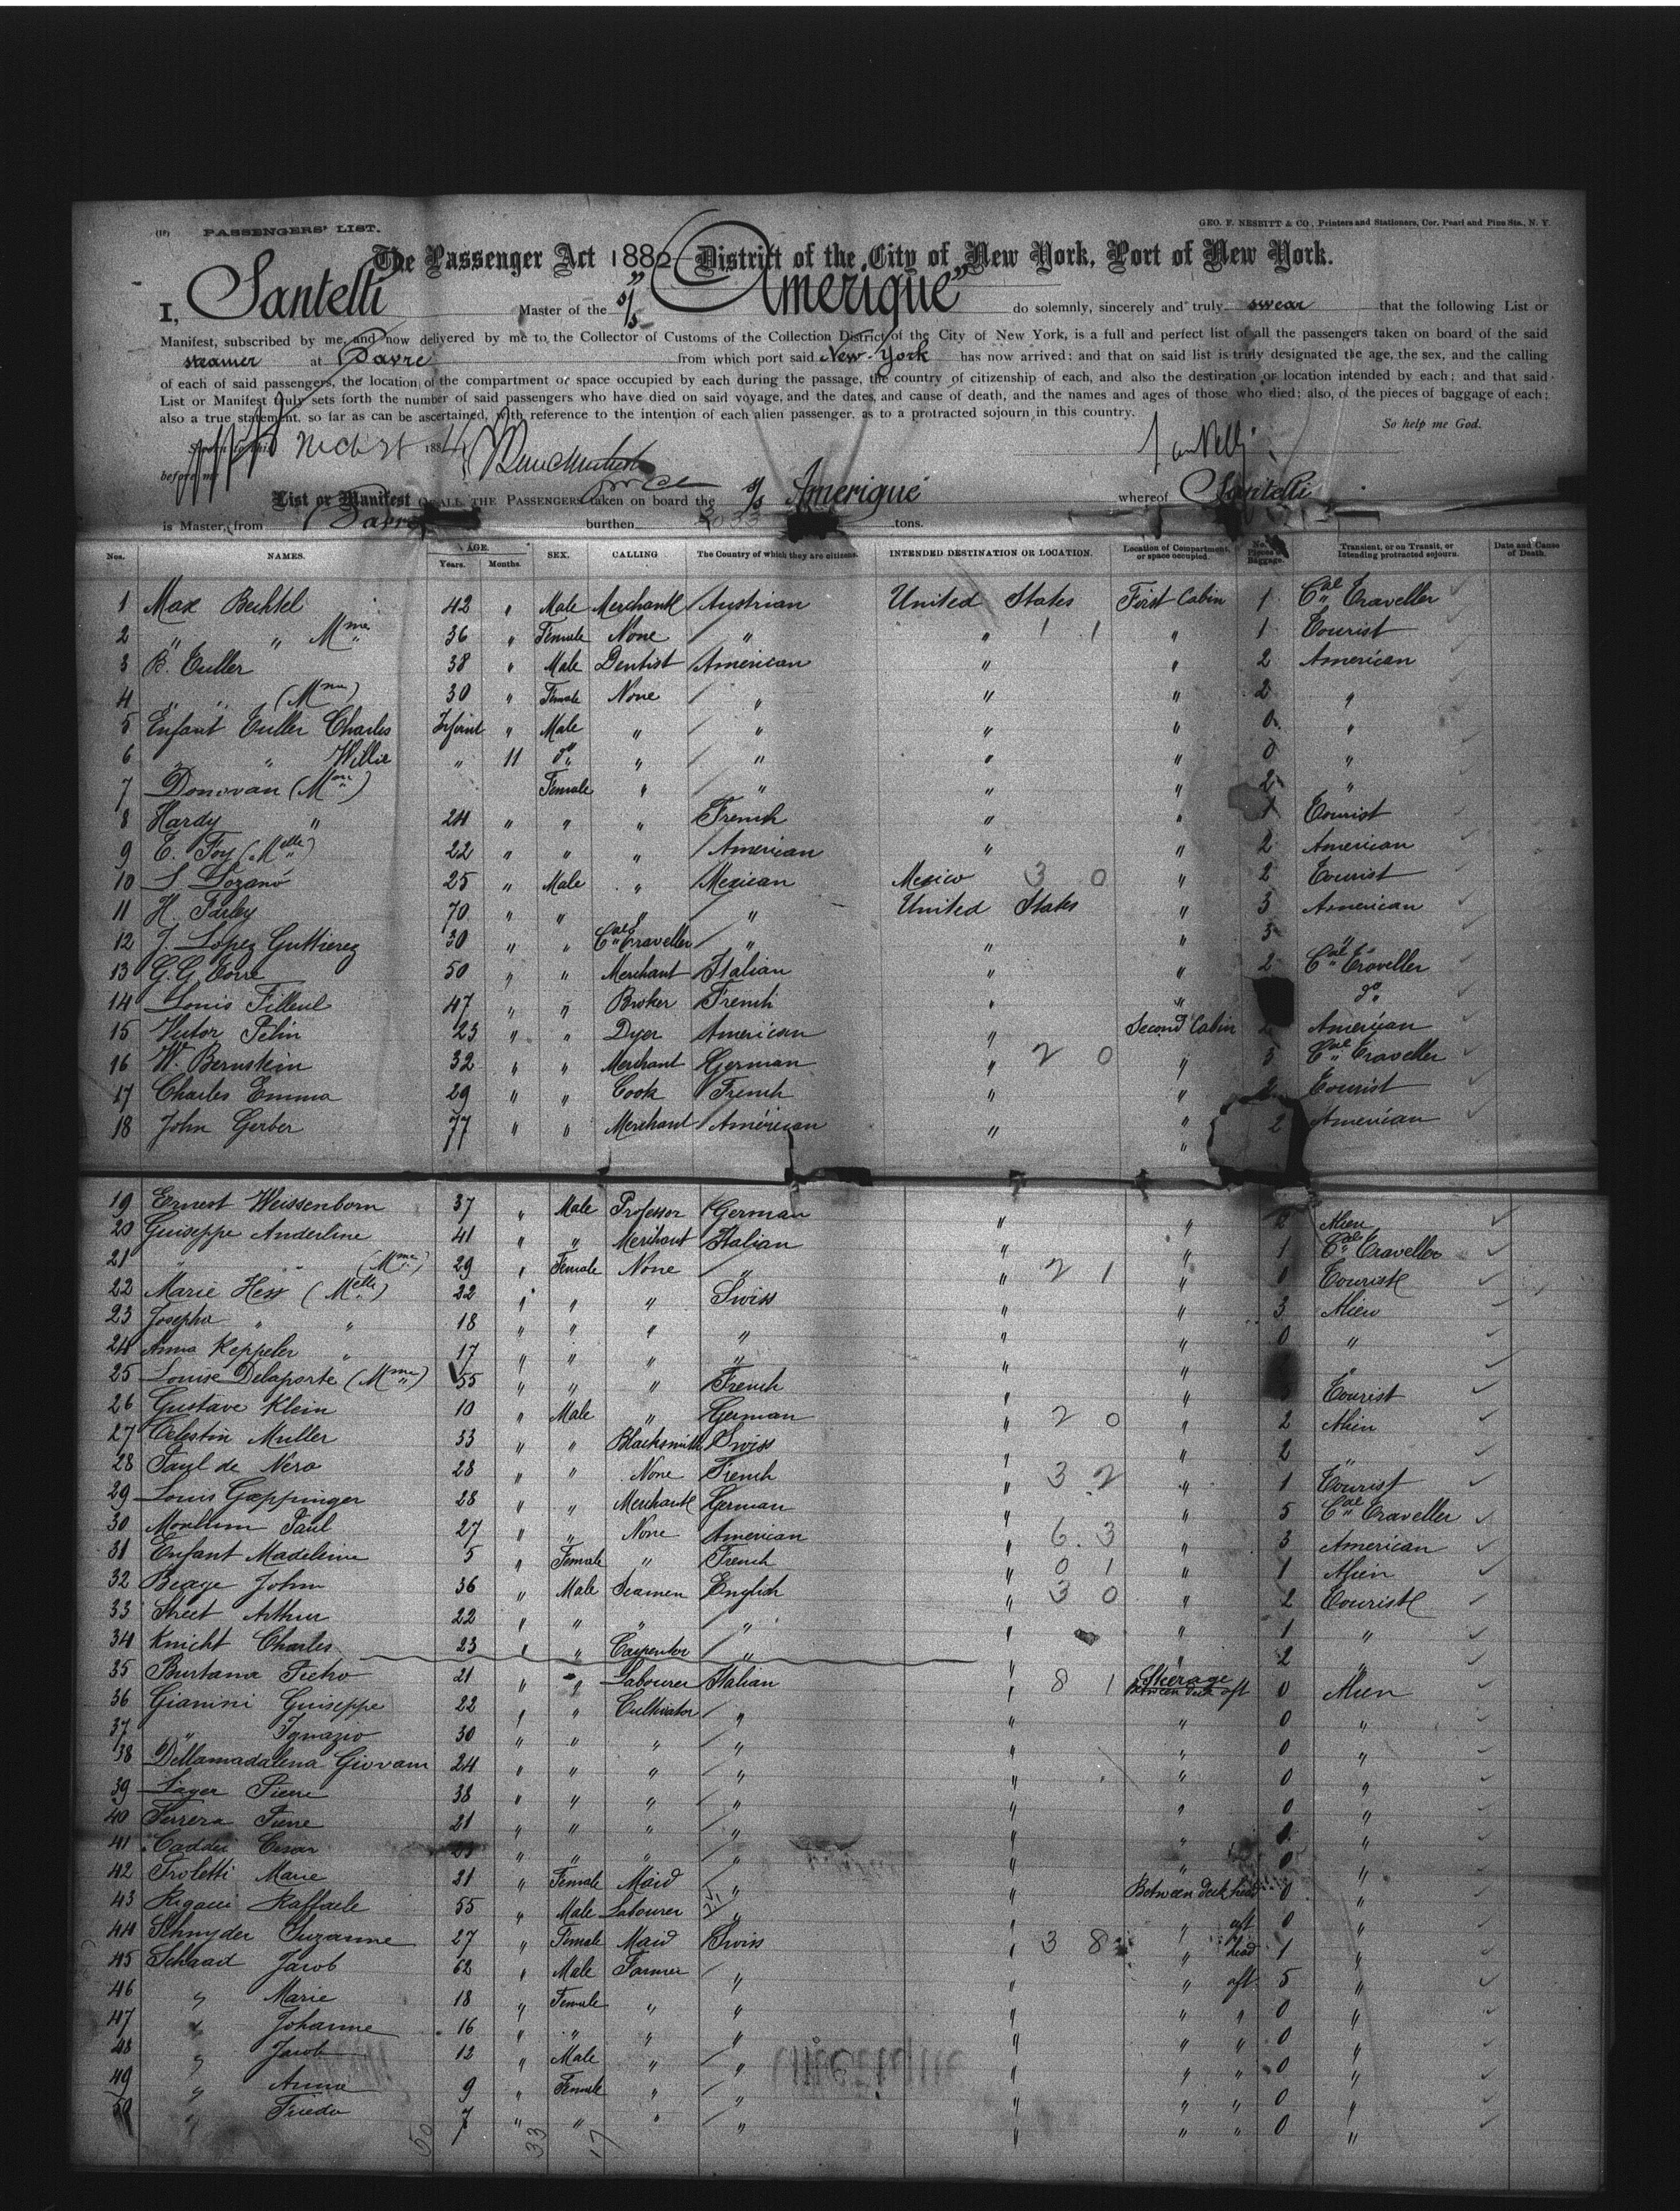 (1F) PASSENGERS' LIST.
GEO. F. NESBITT & CO., Printers and Stationers, Cor. Pearl and Pine Sts., N. Y.
The Passenger Act 1882 District of the City of New York, Port of New York.
I, Santelli Master of the s/s "Amerique" do solemnly, sincerely and truly swear that the following List or
Manifest, subscribed by me, and now delivered by me to the Collector of Customs of the Collection District of the City of New York, is a full and perfect list of all the passengers taken on board of the said
steamer at Havre from which port said New-York has now arrived; and that on said list is truly designated the age, the sex, and the calling
of each of said passengers, the location of the compartment or space occupied by each during the passage, the country of citizenship of each, and also the destination or location intended by each; and that said
List or Manifest truly sets forth the number of said passengers who have died on said voyage, and the dates, and cause of death, and the names and ages of those who died; also, of the pieces of baggage of each;
also a true statement, so far as can be ascertained, with reference to the intention of each alien passenger, as to a protracted sojourn in this country.
So help me God.
Sworn to this 188
before me
Santelli
List or Manifest OF ALL THE PASSENGERS taken on board the s/s Amerique whereof Santelli
is Master, from Havre burthen 3033 tons.
Nos. NAMES. AGE. Years. Months. SEX. CALLING The Country of which they are citizens. INTENDED DESTINATION OR LOCATION. Location of Compartment, or space occupied. No. Pieces Baggage. Transient, or on Transit, or intending protracted sojourn. Date and Cause of Death.
1 Max Bechtel 42 " Male Merchant Austrian United States First Cabin 1 Cal Traveller
2 " " Mme 36 " Female None " " 1 1 " 1 Tourist
3 B. Tuller 38 " Male Dentist American " " 2 American
4 " " (Mme) 30 " Female None " " " 2 "
5 Enfant Tuller Charles Infant " Male " " " " 0 "
6 " " Willie " 11 do " " " " 0 "
7 Donovan (Mme) Female " " " " 2 "
8 Hardy " 24 " " " French " " 1 Tourist
9 E. Foy (Melle) 22 " " " American " " 2 American
10 S Lozano 25 " Male " Mexican Mexico 3 0 " 2 Tourist
11 H. Farley 70 " " " " United States " 3 American
12 J. Lopez Guttierez 30 " " Cal Traveller " " " 3 "
13 G. G. Torre 50 " " Merchant Italian " " 2 Cal Traveller
14 Louis Filleul 47 " " Broker French " " do
15 Victor Pélin 23 " " Dyer American " Second Cabin 2 American
16 W. Bernstein 32 " " Merchant German " 2 0 " 3 Cal Traveller
17 Charles Emma 29 " " Cook French " " 2 Tourist
18 John Gerber 77 " " Merchant American " " 2 American
19 Ernest Weissenborn 37 " Male Professor German " " 2 Alien
20 Guiseppe Anderline 41 " " Merchant Italian " " 1 Cal Traveller
21 " " (Mme) 29 " Female None " " 2 1 " 0 Tourist
22 Marie Hess (Melle) 22 " " " Swiss " " 3 Alien
23 Josepha " " 18 " " " " " " 0 "
24 Anna Keppeler " 17 " " " " " " "
25 Louise Delaporte (Mme) 55 " " " French " " Tourist
26 Gustave Klein 10 " Male " German " 2 0 " 2 Alien
27 Celestin Muller 33 " " Blacksmith Swiss " " 2 "
28 Paul de Nero 28 " " None French " 3 2 " 1 Tourist
29 Louis Gœppinger 28 " " Merchant German " " 5 Cal Traveller
30 Paul 27 " " None American " 6 3 " 3 American
31 Enfant Madeleine 5 " Female " French " 0 1 " 1 Alien
32 Beaye John 36 " Male Seamen English " 3 0 " 2 Tourist
33 Street Arthur 22 " " " " " " 1 "
34 Knicht Charles 23 " " Carpentor " " " 2 "
35 Burtana Pietro 21 " " Labourer Italian " 8 1 Steerage Between deck aft 0 Alien
36 Gianini Guiseppe 22 " " Cultivator " " " 0 "
37 " Ignazio 30 " " " " " " 0 "
38 Dellamadalena Giovani 24 " " " " " " 0 "
39 Lager Pierre 38 " " " " " " 0 "
40 Ferrera Pierre 21 " " " " " " 0 "
41 Caddei Cesar 23 " " " " " " 0 "
42 Troletti Marie 21 " Female Maid " " Between deck head 0 "
43 Rigacci Raffaele 55 " Male Labourer " " " aft 0 "
44 Schnyder Suzanne 27 " Female Maid Swiss " 3 8 " head 1 "
45 Schaad Jacob 62 " Male Farmer " " " aft 5 "
46 " Marie 18 " Female " " " " " 0 "
47 " Johanne 16 " " " " " " " 0 "
48 " Jacob 12 " Male " " " " " 0 "
49 " Anna 9 " Female " " " " " 0 "
50 " Frieda 7 " " " " " " " 0 "
50 33 17